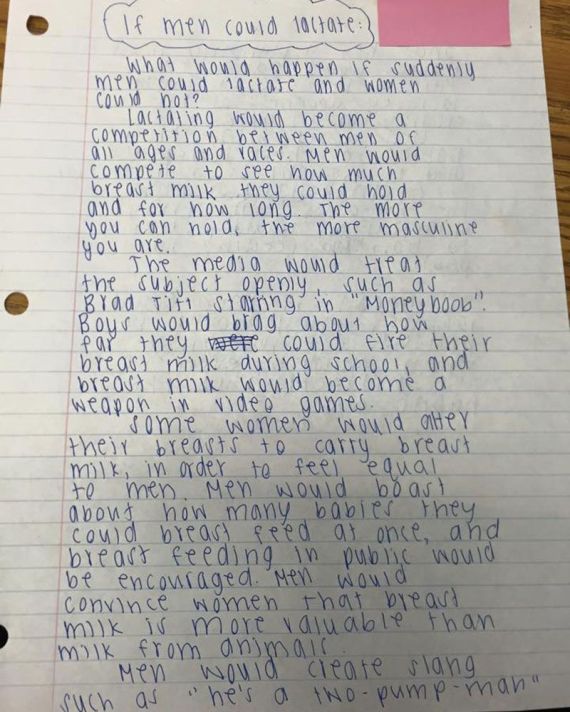 If men could lactate:
What would happen if suddenly
men could lactate and women
could not?
Lactating would become a
competition between men of
all ages and races. Men would
compete to see how much
breast milk they could hold
and for how long. The more
you can hold, the more masculine
you are.
The media would treat
the subject openly, such as
Brad Titt starring in "Moneyboob".
Boys would brag about how
far they could fire their
breast milk during school, and
breast milk would become a
weapon in video games.
Some women would alter
their breasts to carry breast
milk, in order to feel equal
to men. Men would boast
about how many babies they
could breast feed at once, and
breast feeding in public would
be encouraged. Men would
convince women that breast
milk is more valuable than
milk from animals.
Men would create slang
such as "he's a two-pump-man"